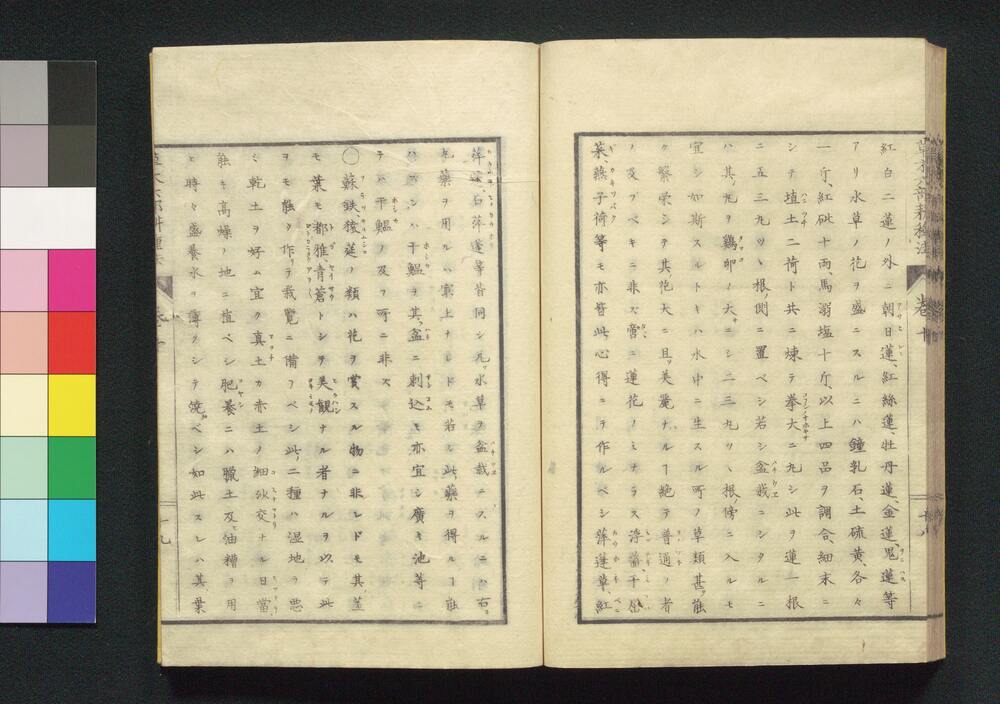 紅白二蓮ノ外ニ朝日蓮、紅絲蓮、牡丹蓮、金蓮、鬼蓮等
アリ水草ノ花ヲ盛ニスルニハ鐘乳石、土硫黄、各々
一斤、紅砒十両、馬溺塩十斤、以上四品ヲ調合、細末ニ
シテ埴土二荷ト共ニ煉テ拳大ニ丸シ此ヲ蓮一根
ニ五三九ツヽ根ノ側ニ置ベシ若シ盆栽ニシタルニ
ハ其丸ヲ鶏卵ノ大サニシ二三丸ツヽ根ノ傍ニ入ルモ
宜シ如斯スルトキハ水中ニ生スル所ノ草類甚ダ能
ク繁栄シテ其花大ニ且ツ美麗ナルヿ絶テ普通ノ者
ノ及ブベキニ非ズ啻ニ蓮花ノミナラス
菜、燕子荷等モ亦皆此心得ニテ作ルベシ萍蓬草、紅
石萍蓬等皆同シ凡ソ水草ヲ盆栽ニスルニハ右ノ
丸薬ヲ用ルハ寔上ナレドモ若シ此薬ヲ得ルヿ能
ハズンハ干鰮ヲ其盆ニ刺込モ亦宜シ廣キ池等ニ
テハ干鰮ノ及ヲ所ニ非ス
○蘇鉄、ノ類ハ花ヲ賞スル物ニ非レドモ其莖
モ葉モ都雅、青蒼トシテ美観ナル者ナルヲ以テ此
ヲモ能ク作リテ栽覧ニ備フベシ此二種ハ湿地ヲ悪
ミ乾土ヲ好ム宜ク真土カ赤土ノ細砂交ナル日當
能キ高燥ノ地ニ植ベシ肥養ニハ臘土及ビ油糟ヲ用
ヒ時々盛養水ヲ薄クシテ澆ベシ如此スレハ其葉
巻十
十八
十九